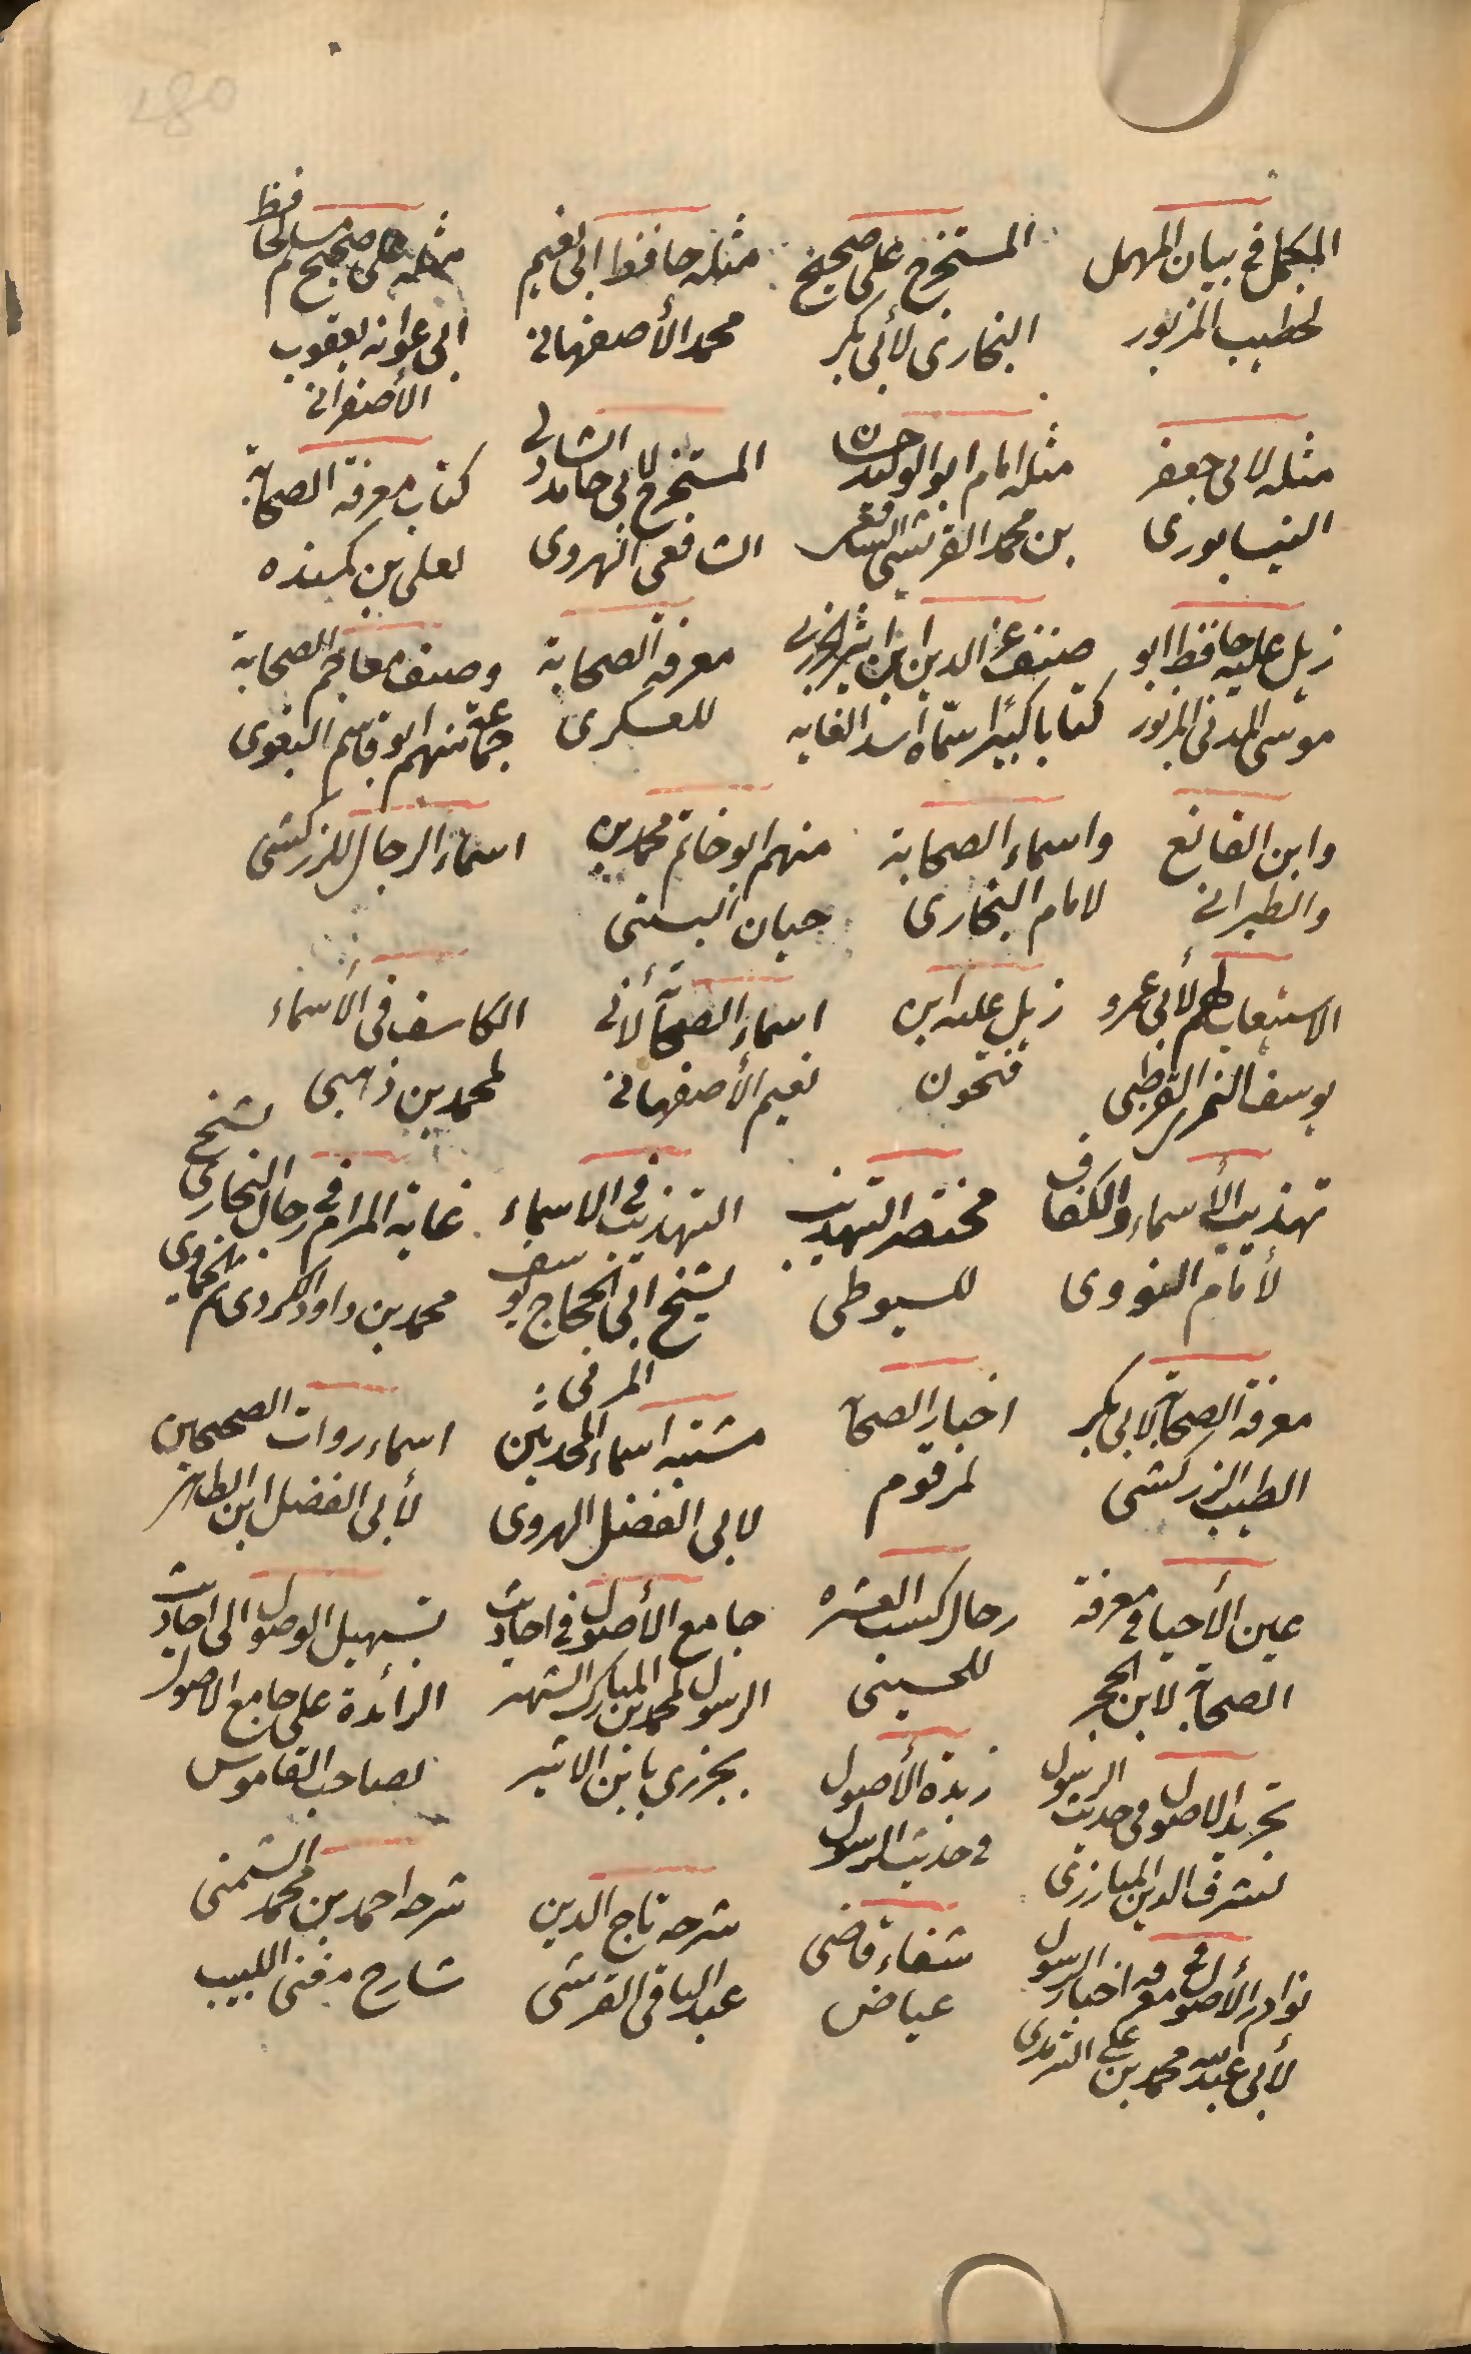 280
المكمل في بيان المهمل
لخطيب المزبور
المستخرج على صحيح
البخارى لأبي بكر
مثله حافظ ابى نعيم
محمد الأصفهانى
مثله على صحيح مسلم لحافظ
ابى عوانه يعقوب
الأصفرانى
مثله لابى جعفر
النيسابورى
مثله امام ابو الوليد حسان
بن محمد القرشى الشافعى
المستخرج لابى حامد
الشافعى الهروى
كتاب معرفة الصحابة
لعلى بن
زيل عليه حافظ ابو
موسى المدنى المزبور
صنف عز الدين ابن اثير الجزرى
كتابا كبيرا سماه اسد الغابه
معرفة الصحابة
للعسكرى
وصنف معاجم الصحابة
جماعة منهم ابو قاسم البغوى
وابن القانع
والطبرانى
واسماء الصحابة
لامام البخارى
منهم ابو خاتم محمد بن
حبان البستى
اسماء الرجال للزركشى
الاستيعاب لأبى عمرو
يوسف النمرى القرطبى
زيل عليه ابن
فتحون
اسماء الصحابة لأبى
نعيم الأصفهانى
الكاسف فى الأسماء
لمحمد بن ذهبى
تهذيب الأسماء والكفاف
لأمام النووى
مختصر التهذيب
للسيوطى
التهذيب فى الاسماء
لشيخ ابى الحجاج يوسف
المزنى
غاية المرام فى رجال البخارى لشيخ
محمد بن داود الكردى ثم الحموى
معرفة الصحابة لابى بكر
الطيب الزركشى
اخبار الصحابة
لمرقوم
مشتبه اسماء المحدثين
لابى الفضل الهروى
اسماء روات الصحيحين
لأبى الفضل ابن الطاهر
عين الأحيا فى معرفة
الصحابة لابن الحجر
رجال كتب العشره
للحسينى
جامع الأصول فى احاديث
الرسول لمحمد بن المبارك الشهير
بجزرى بابن الاثير
تسهيل الوصول الى احاديث
الزائدة على جامع الاصول
لصاحب القاموس
تجريد الاصول فى حديث الرسول
لشرف الدين المبارزى
زبدة الأصول
فى حديث الرسول
نوادر الأصول فى معرفة اخبار الرسول
لأبى عبد الله محمد بن على الترمدى
شفاء قاضى
عياض
شرحه تاج الدين
عبد الباقى القرشى
شرحه احمد بن محمد الشمنى
شارح مغنى اللبيب